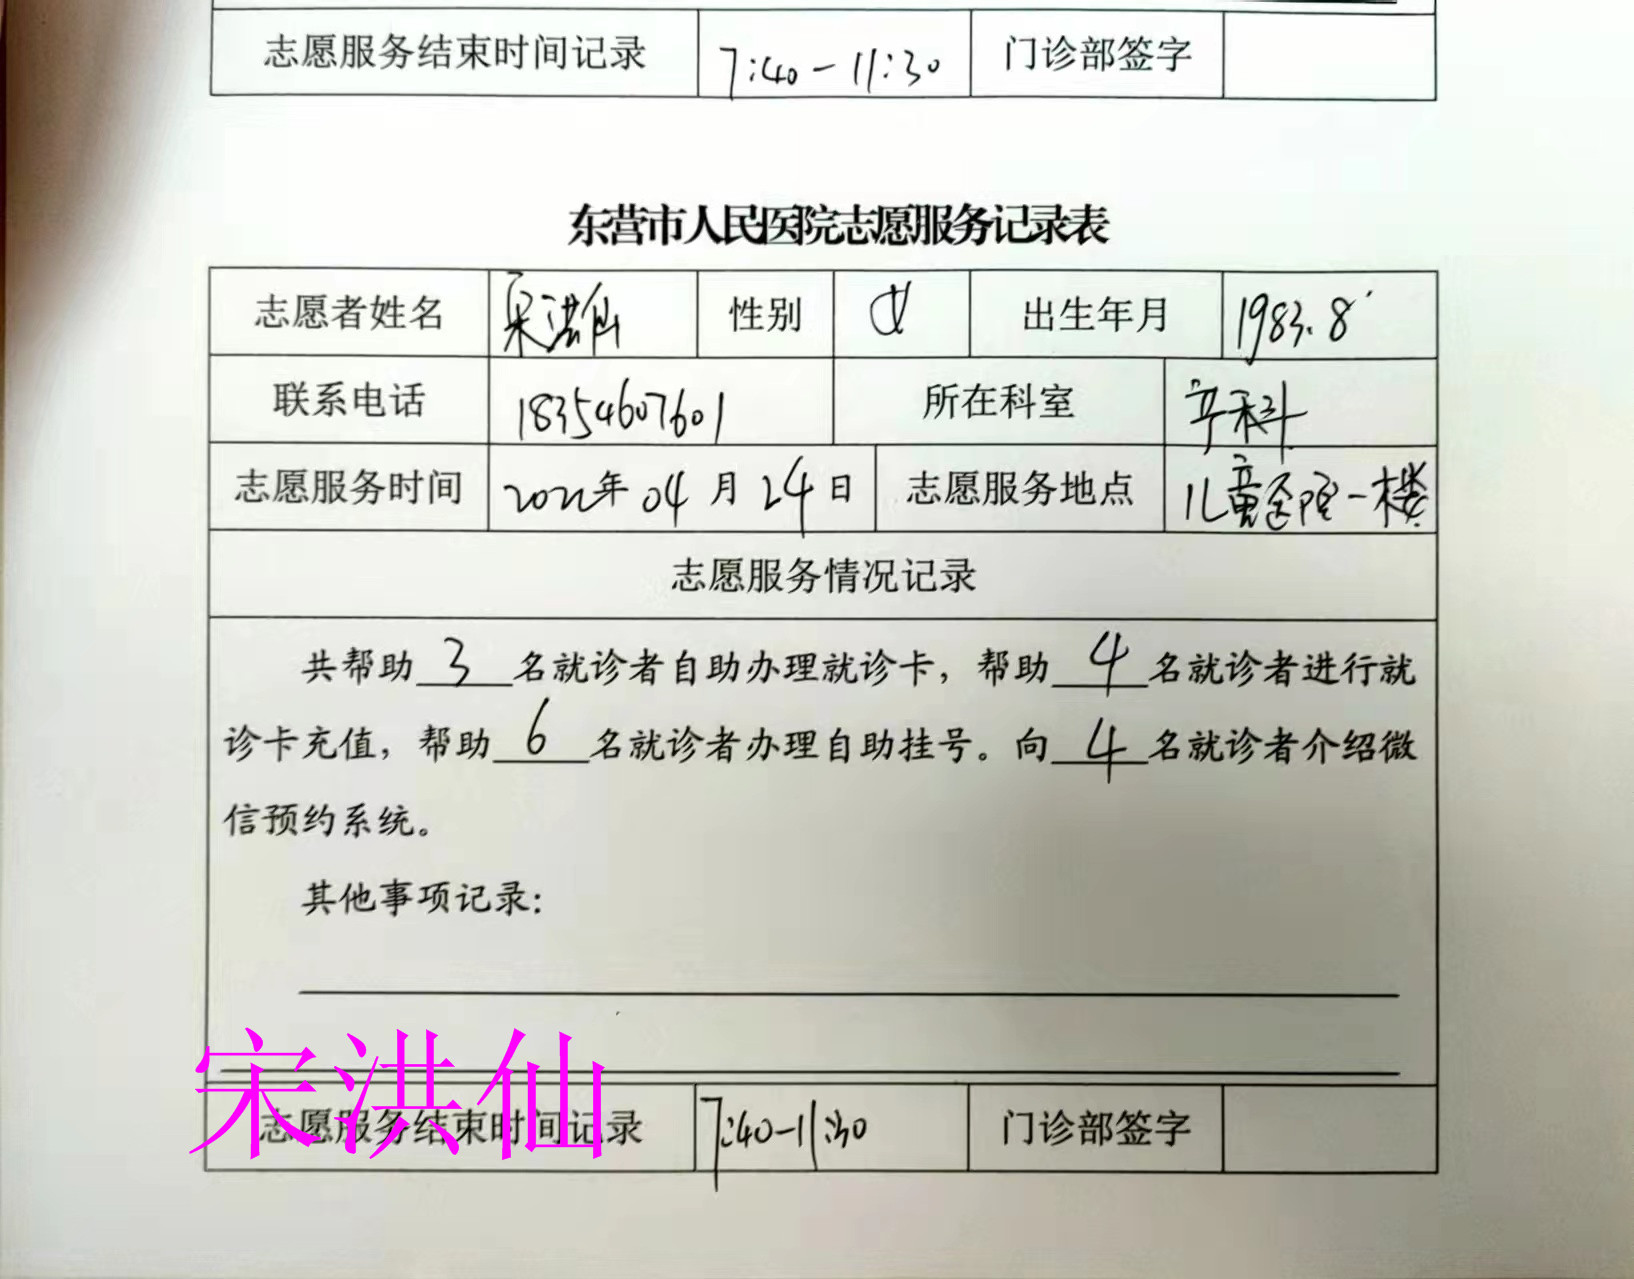 志愿服务结束时间记录 7:40-11:30 门诊部签字
东营市人民医院志愿服务记录表
志愿者姓名 宋洪仙 性别 女 出生年月 1983.8
联系电话 18354607601 所在科室 产科
志愿服务时间 2022年04月24日 志愿服务地点 儿童医院一楼
志愿服务情况记录
共帮助3名就诊者自助办理就诊卡，帮助4名就诊者进行就
诊卡充值，帮助6名就诊者办理自助挂号。向4名就诊者介绍微
信预约系统。
其他事项记录：
宋洪仙
志愿服务结束时间记录 7:40-11:30 门诊部签字